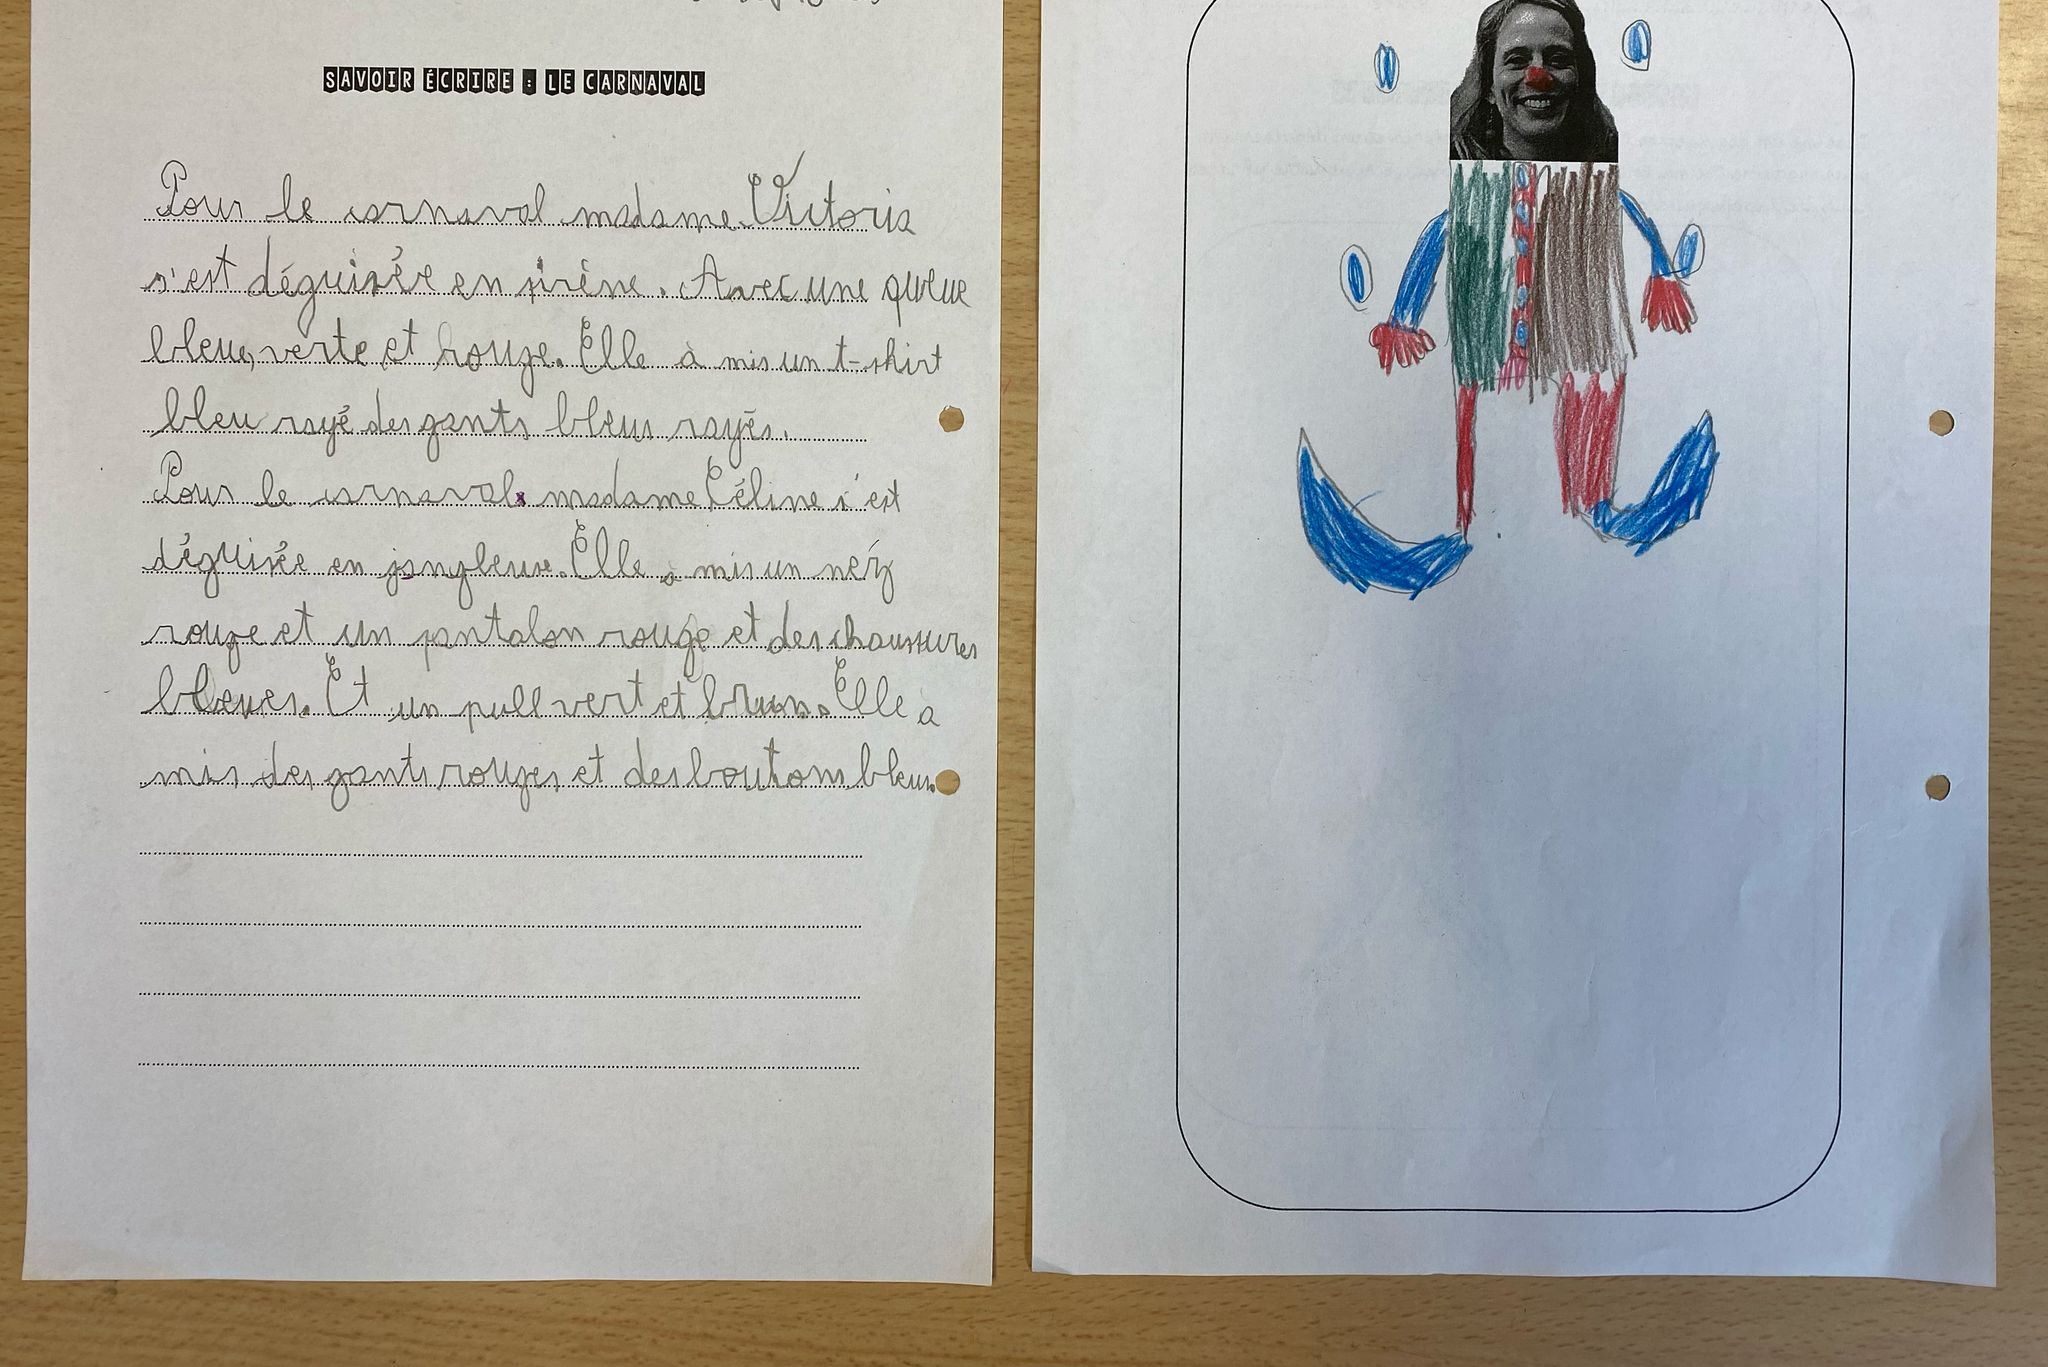 SAVOIR ÉCRIRE : LE CARNAVAL
Pour le carnaval madame Victoria
s'est déguisée en sirène. Avec une queue
bleue, verte et rouge. Elle à mis un t-shirt
bleu rayé des gants bleus rayés.
Pour le carnaval madame Céline s'est
déguisée en jongleuse. Elle a mis un néz
rouge et un pantalon rouge et des chaussures
bleues. Et un pull vert et brun. Elle a
mis des gants rouges et des boutons bleus.